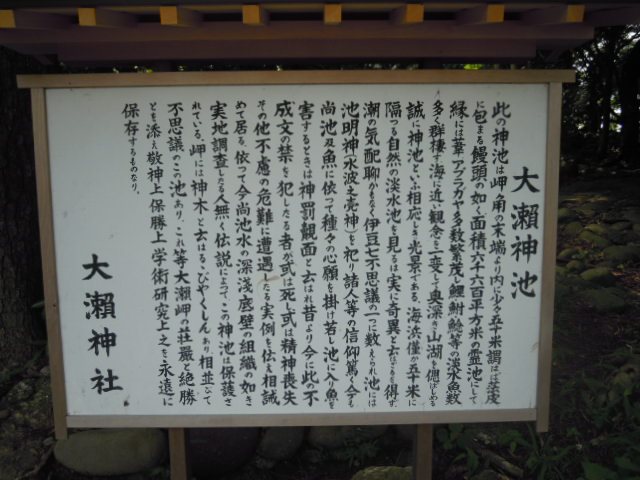 大瀬神池
此の神池は岬一角の末端より内に少々五十米謂はゞ莊茂
に包まる饅頭の如く面積六千六百平方米の霊池にして
縁には葦アブラガヤ多数繁茂し鯉鮒鯰等の淡水魚数
多く群棲す海に近い観念を一変して奥深き山湖を偲ばしめる
誠に神池といふ相応しき光景である、海浜僅か五十米に
隔つる自然の淡水池を見るは実に奇異と云はざるを得ず、
潮の気配聊かもなく伊豆七不思議の一つに数えられ池には
池明神(水波之売神)を祀り諸人等の信仰篤く今も
尚池及魚に依って種々の心願を掛け若し池に入り魚を
害するときは神罰覿面と云はれ昔より今に此の不
成文の禁を犯したる者が或は死し或は精神喪失
その他不慮の危難に遭遇したる実例を伝え相誡
めて居る、依って今尚池水の深浅底壁の組織の如き
実地調査したる人無く伝説によって、この神池は保護さ
れている、岬には神木と云はる、びやくしんあり相並びて
不思議のこの池あり、これ等大瀬岬の荘厳と絶勝
とを添え敬神上保勝上学術研究上之を永遠に
保存するものなり、
大瀬神社